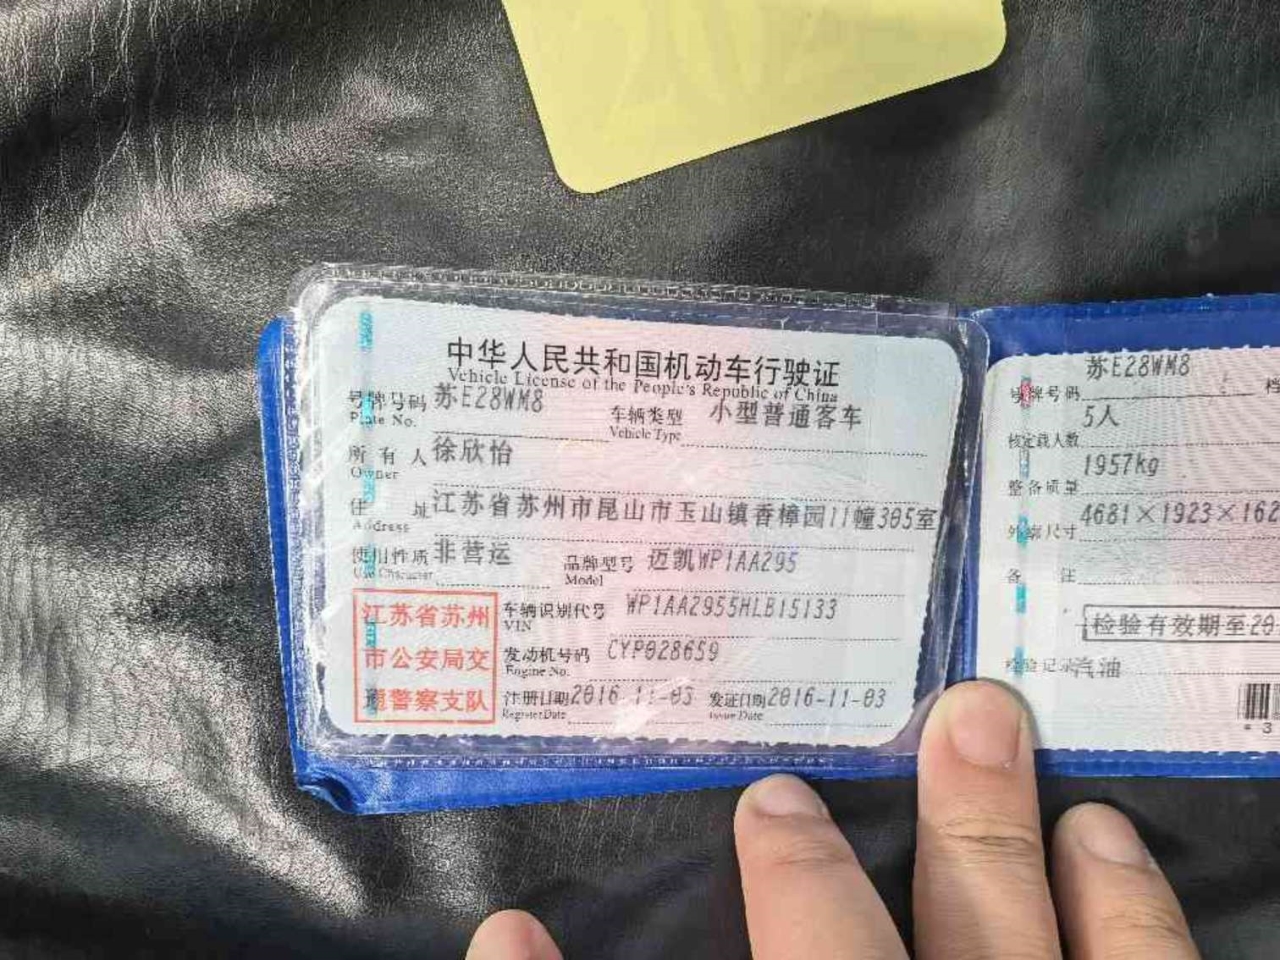 中华人民共和国机动车行驶证
Vehicle License of the People's Republic of China
号牌号码 苏E28WM8 车辆类型 小型普通客车
Plate No. Vehicle Type
所有人 徐欣怡
Owner
住址 江苏省苏州市昆山市玉山镇香樟园11幢305室
Address
使用性质 非营运 品牌型号 迈凯WP1AA295
Use Character Model
江苏省苏州
市公安局交
通警察支队
车辆识别代号 WP1AA2955HLB15133
VIN
发动机号码 CYP028659
Engine No.
注册日期 2016-11-03 发证日期 2016-11-03
Register Date Issue Date
号牌号码 苏E28WM8
核定载人数 5人
整备质量 1957kg
外廓尺寸 4681×1923×162
备注
检验有效期至20
检验记录 汽油
* 3